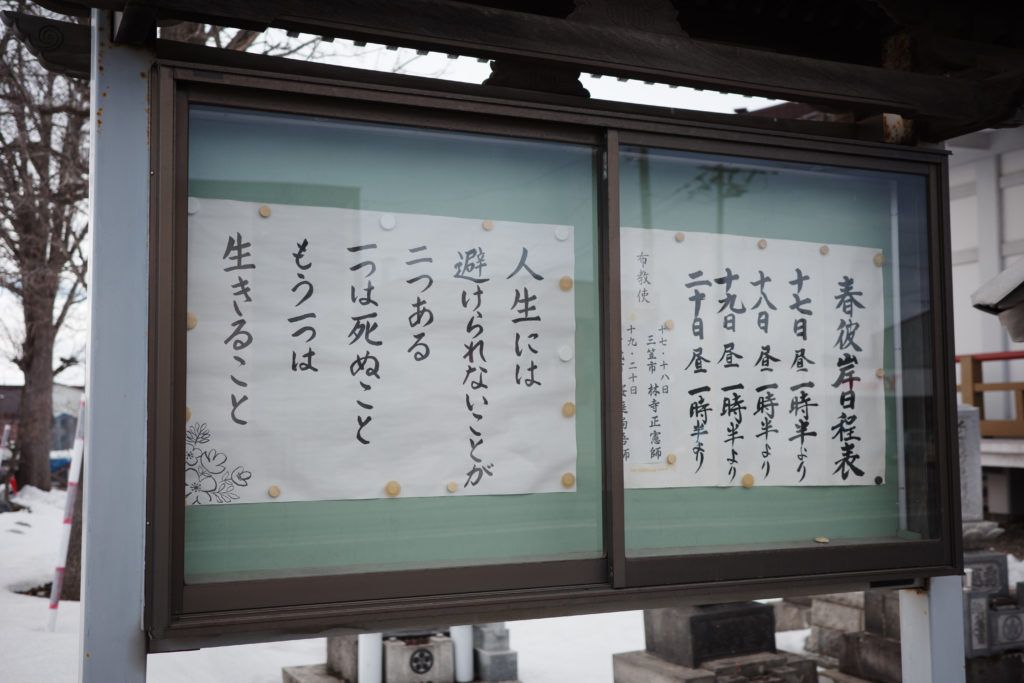 春彼岸日程表
十七日 昼 一時半より
十八日 昼 一時半より
十九日 昼 一時半より
二十日 昼 一時半より
布教使
十七・十八日
三笠市 林寺正憲師
十九・二十日
師
人生には
避けられないことが
二つある
一つは死ぬこと
もう一つは
生きること